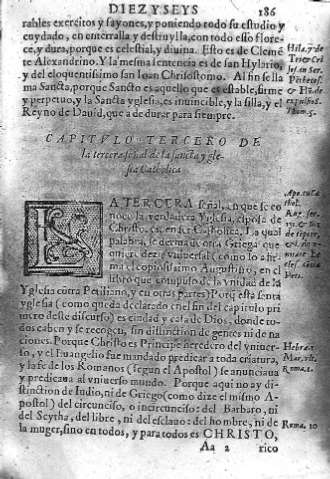 DIEZ Y SEYS 186
rables exercitos y sayones, y poniendo todo su estudio y
cuydado, en enterralla y destruylla, con todo esto flore-
ce, y dura, porque es celestial, y diuina. Esto es de Cleme
te Alexandrino. Y la mesma sentencia es de san Hylario,
y del eloquentissimo san Ioan Chrisostomo. Al fin es lla
ma Sancta, porque Sancto es aquello que es estable, firme
y perpetuo, y la Sancta yglesia, es inuincible, y la silla, y el
Reyno de Dauid, que a de durar para siempre.
CAPITVLO TERCERO DE
la tercera señal de la sancta y gle-
sia Catholica
LA TERCERA señal, en que se co
noce la verdadera Yglesia, esposa de
Christo, es, en ser Catholica. La qual
palabra, se deriua de otra Griega que
quiere dezir vniuersal (como lo afir-
ma el copiosissimo Augustino, en el
libro que compuso de la vnidad de la
Yglesia cõtra Petiliano, y en otras partes) Porq̃ esta santa
yglesia (como queda declarado en el fin del capitulo pri
mero deste discurso) es ciudad y casa de Dios, donde to-
dos caben y se recogen, sin distinction de gentes ni de na
ciones. Porque Christo es Principe heredero del vniuer-
so, y el Euangelio fue mandado predicar a toda criatura,
y la fe de los Romanos (segun el Apostol) se anunciaua
y predicaua al vniuerso mundo. Porque aqui no ay di-
stinction de Iudio, ni de Griego (como dize el mismo A-
postol) del circunciso, o incircunciso: del Barbaro, ni
del Scytha, del libre, ni del esclauo: del hombre, ni de
la muger, sino en todos, y para todos es CHRISTO,
Aa 2 rico
Hebre. 1
Mar. vlt.
Roma. 1.
Roma. 10